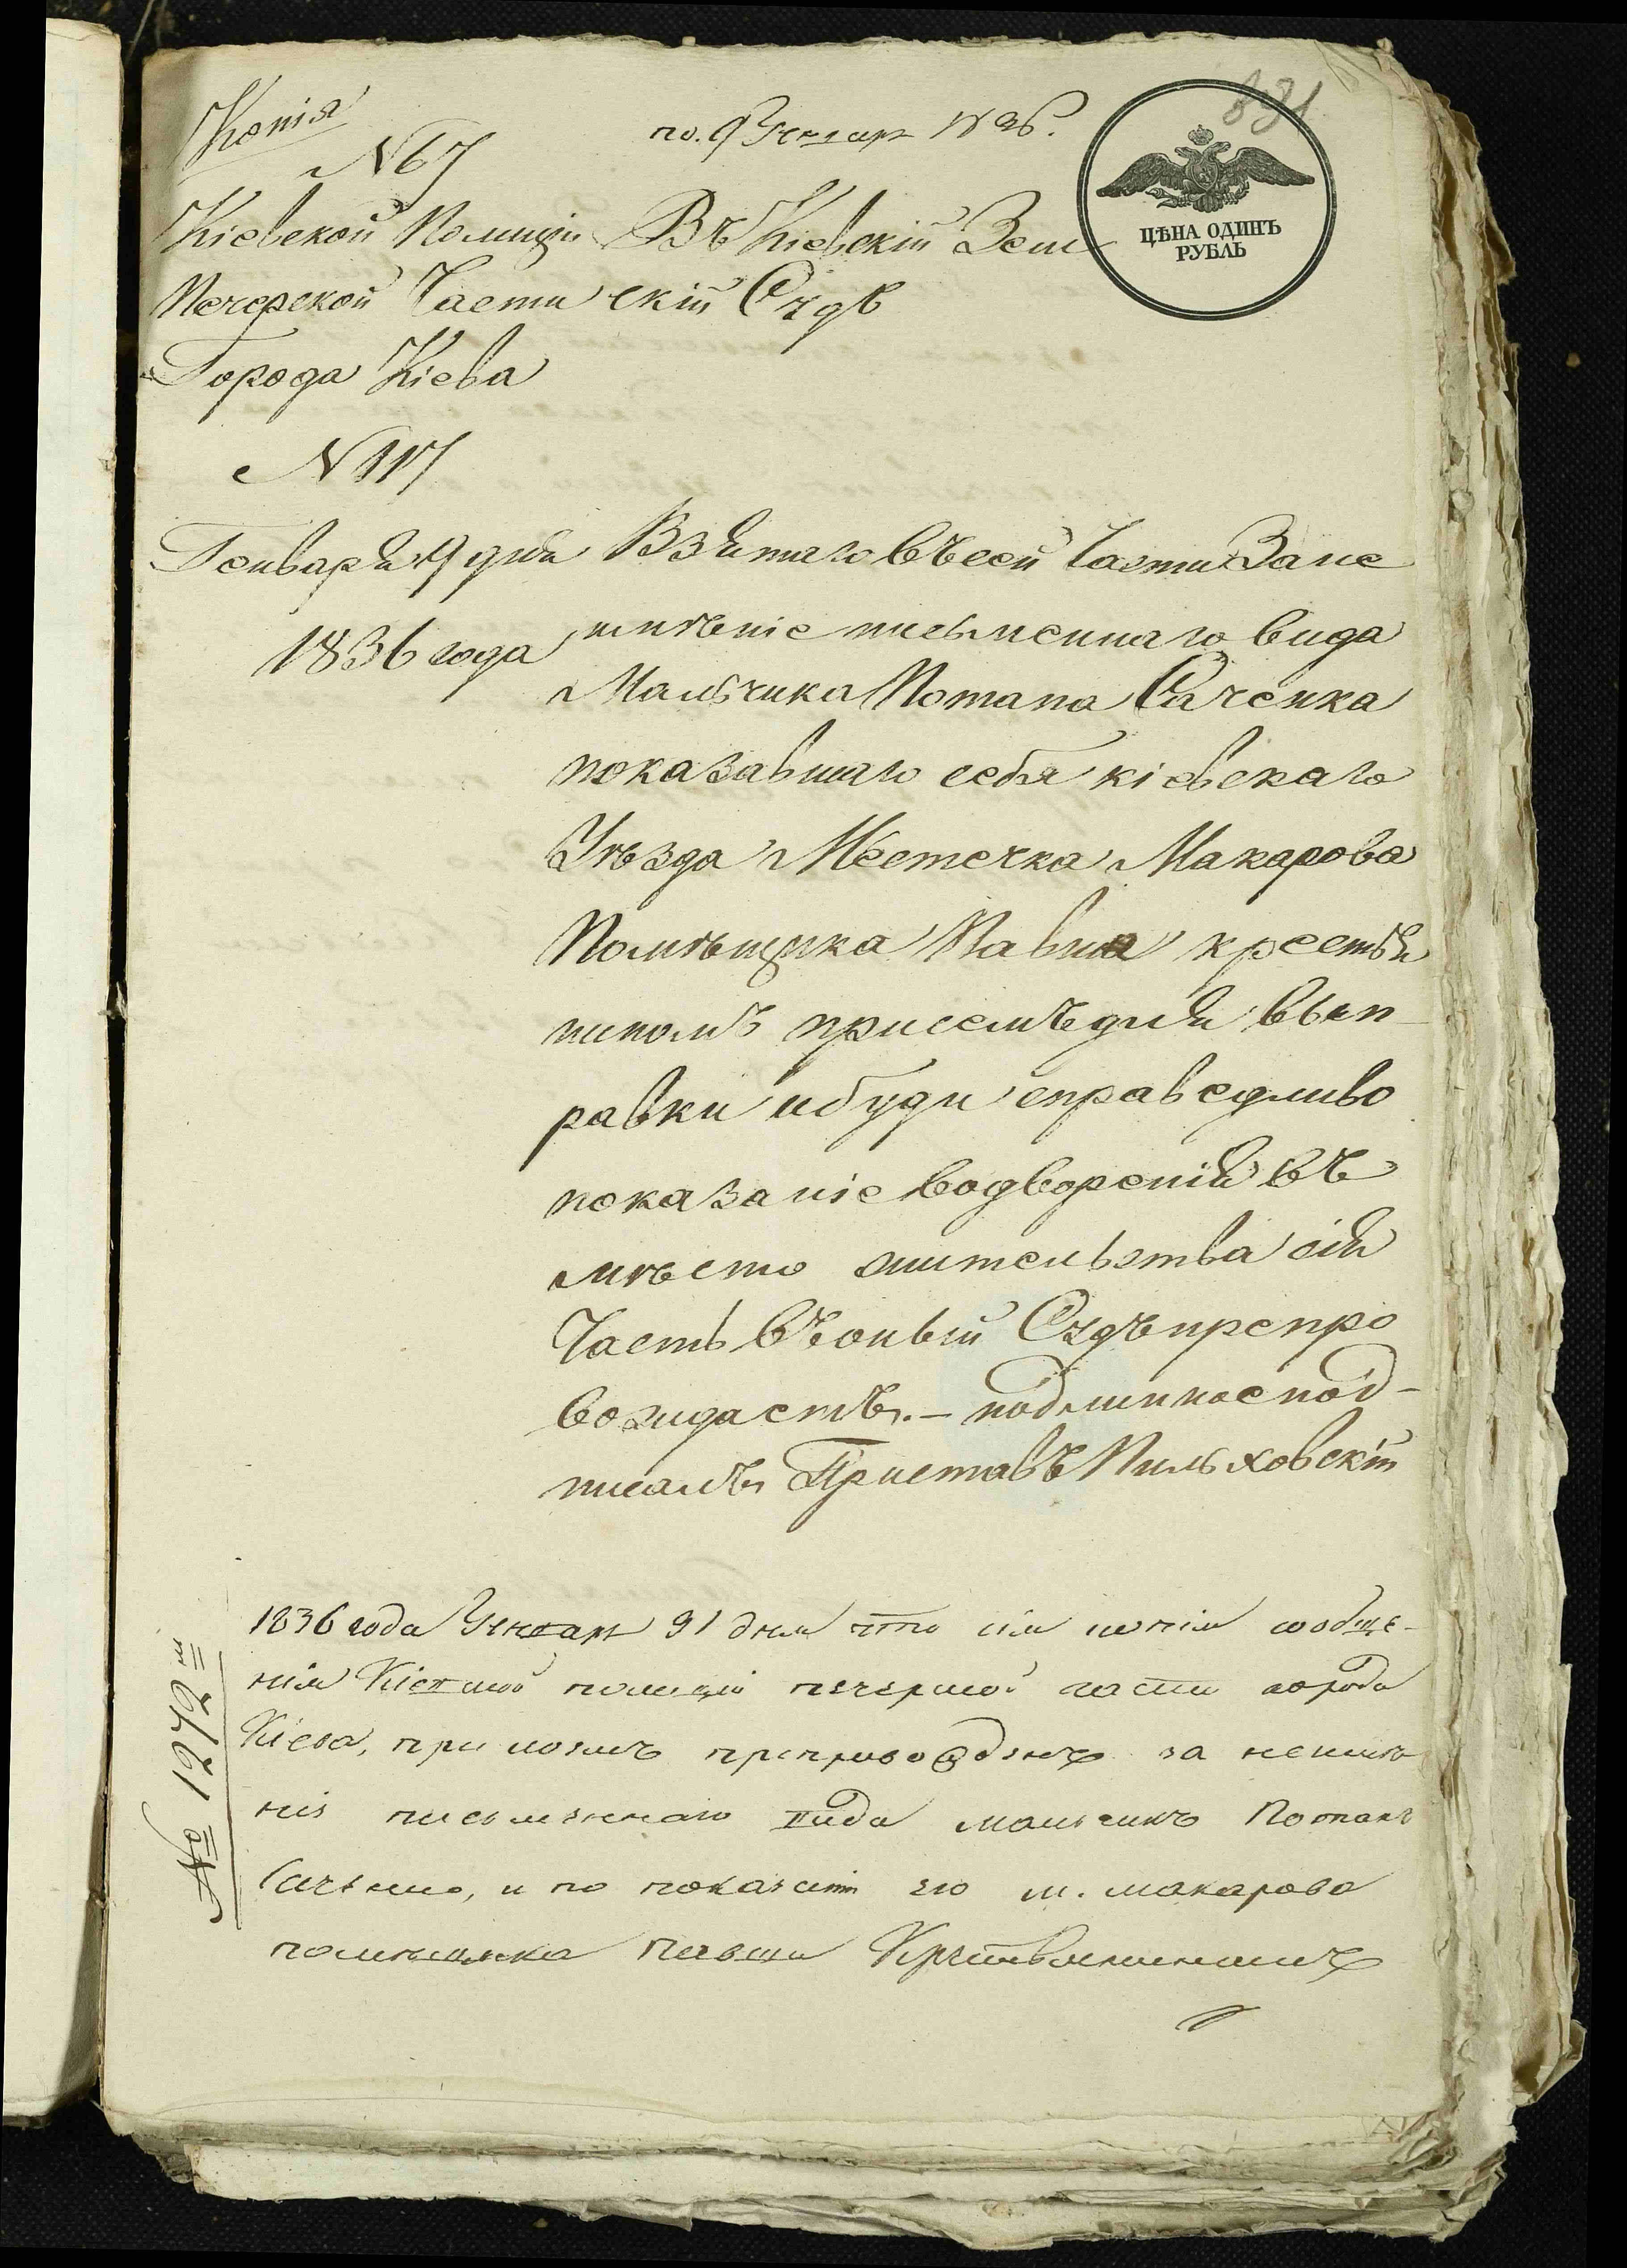 Копія
N 67
по. 9 Генваря 1836.
ЦѢНА ОДИНЪ
РУБЛЬ
Кіевской Полиціи
Печерской Части
Города Кіева
N 117
Генваря 9 дня
1836 года
Въ Кіевскій Зем
скій Судъ
Взятаго въ сей Части Зане
имѣніе письменнаго вида
Мальчика Потапа Саченка
показавшаго себя кіевскаго
Уѣзда Местечка Макарова
Помѣщика Павша крестья
ниномъ при семъ для вып
равки и буди справедливо
показаніе водворенія въ
мѣсто жительства сія
Часть въ оный Судъ препро
вождаетъ. – подлинное под-
писалъ Приставъ Пильховскій
№ 1272й
1836 года Генваря 31 дня что сія копія сообще-
нія Кіевской полиціи печерской части города
Кіева, при коемъ препровожденъ за неимѣ
ніе письменнаго вида мальчикъ Потапъ
Саченко, и по показанію его м. макарова
помѣщика Павши Крестьяниномъ